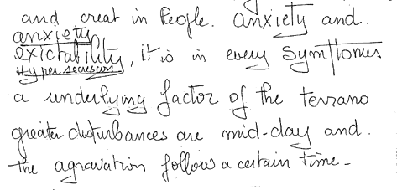 and creat in People. Anxiety and
anxiety
exictability, it is in every symptoms
a underlying factor of the terrano
greater disturbances are mid-day and.
the agravation follows a certain time-